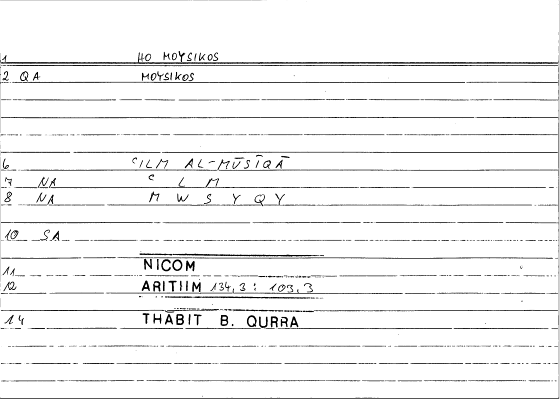 1 HO MOYSIKOS
2 QA MOYSIKOS
6 ʿILM AL-MŪSĪQĀ
7 NA ʿ L M
8 NA M W S Y Q Y
10 SA
11 NICOM
12 ARITIIM 134,3 : 103,3
14 THĀBIT B. QURRA